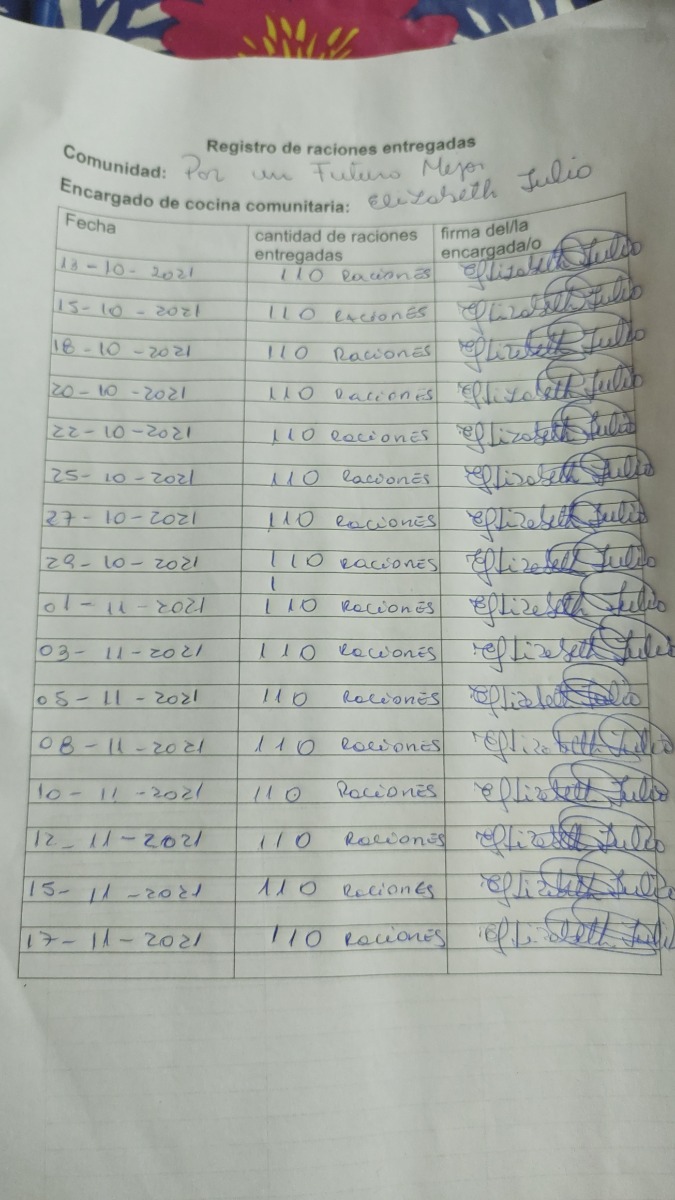 Registro de raciones entregadas
Comunidad: Por un Futuro Mejor
Encargado de cocina comunitaria: Elizabeth Julio
Fecha cantidad de raciones entregadas firma del/la encargada/o
13-10-2021 110 Raciones Elizabeth Julio
15-10-2021 110 Raciones Elizabeth Julio
18-10-2021 110 Raciones Elizabeth Julio
20-10-2021 110 Raciones Elizabeth Julio
22-10-2021 110 Raciones Elizabeth Julio
25-10-2021 110 Raciones Elizabeth Julio
27-10-2021 110 Raciones Elizabeth Julio
29-10-2021 110 Raciones Elizabeth Julio
01-11-2021 110 Raciones Elizabeth Julio
03-11-2021 110 Raciones Elizabeth Julio
05-11-2021 110 Raciones Elizabeth Julio
08-11-2021 110 Raciones Elizabeth Julio
10-11-2021 110 Raciones Elizabeth Julio
12-11-2021 110 Raciones Elizabeth Julio
15-11-2021 110 Raciones Elizabeth Julio
17-11-2021 110 Raciones Elizabeth Julio